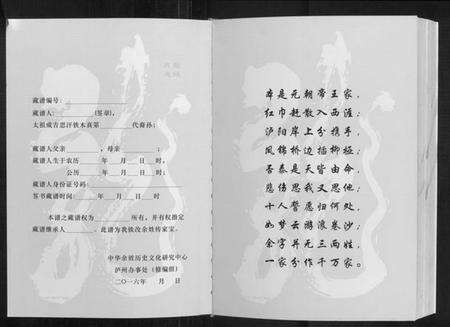 藏谱编号：
藏谱人：（签章），
太祖成吉思汗铁木真第代裔孙；
藏谱人父亲，母亲；
藏谱人生于农历年月日时，
公历年月日时，
藏谱人身份证号码：
签书藏谱时间：年月日时
本谱之藏谱权为所有，并有权指定
藏谱继承人，此谱为我铁改余姓传家宝。
中华余姓历史文化研究中心
泸州办事处（修编组）
二〇一六年月日
本是元朝帝王家，
红巾赶散入西涯；
泸阳岸上分携手，
凤锦桥边插柳桠；
否泰是天皆由命，
悲伤思我又思他；
十人誓愿归何处，
如梦云游浪卷沙；
余字并无三两姓，
一家分作千万家。